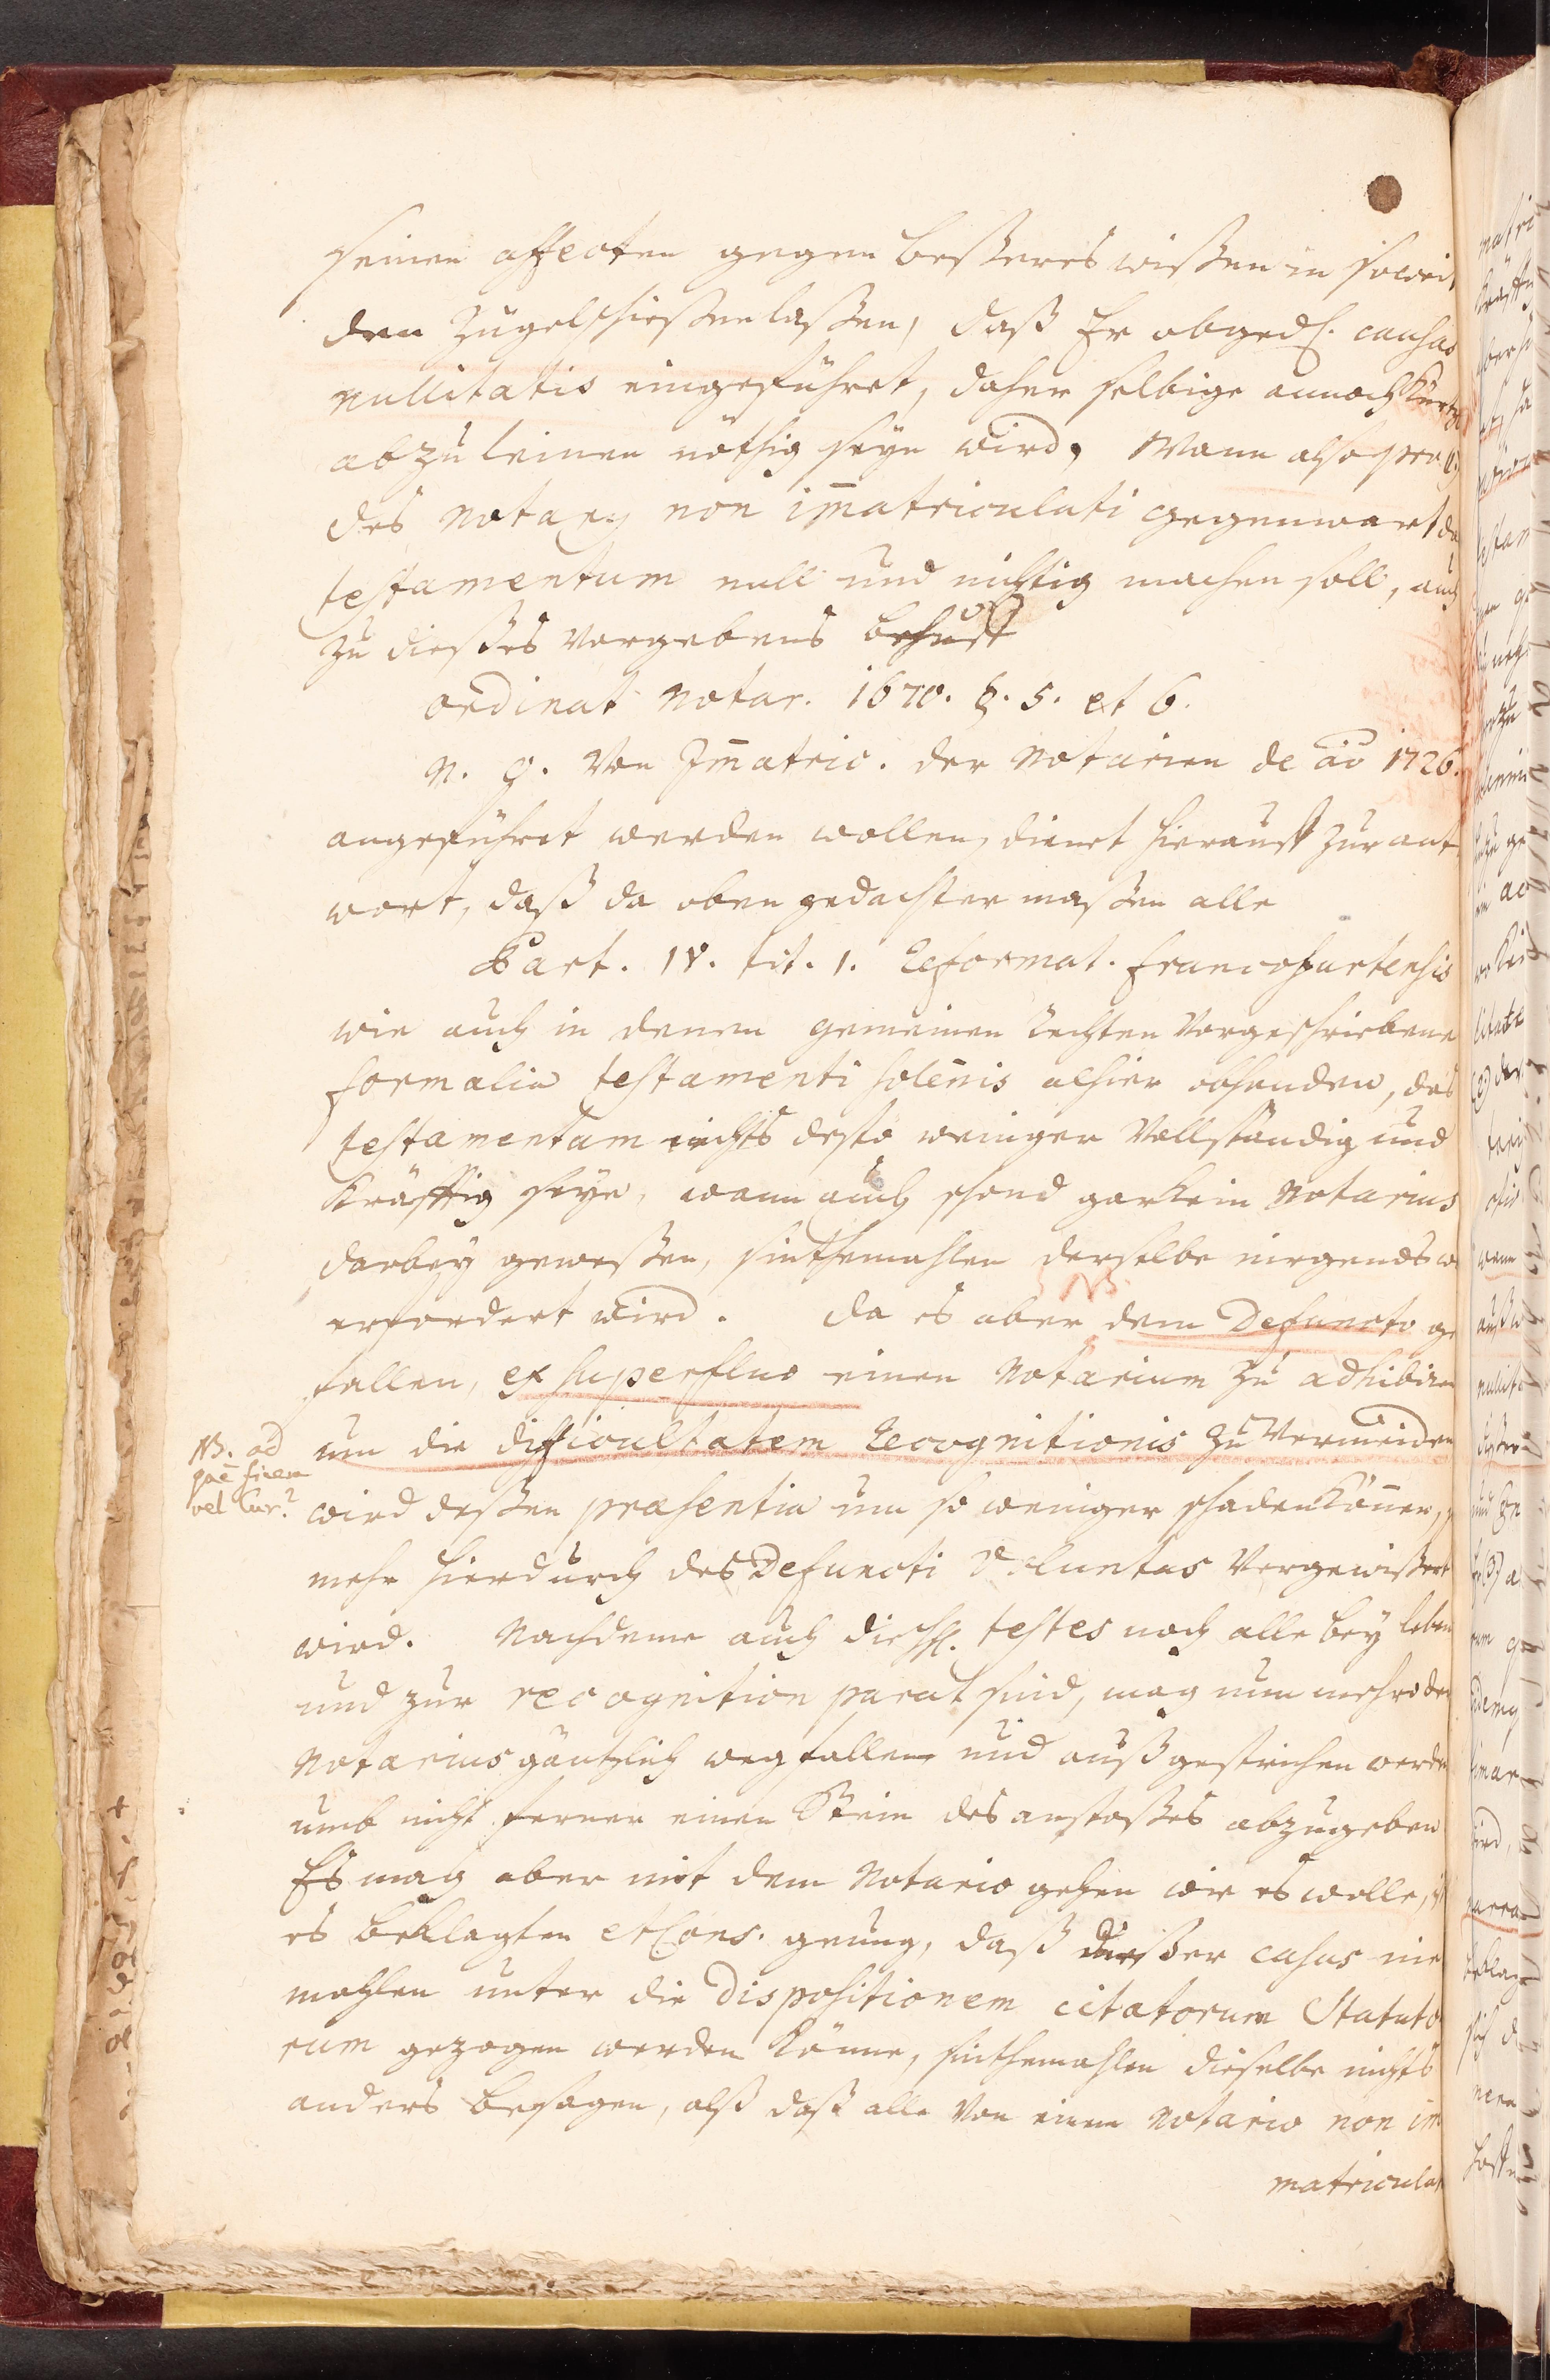 seinen affecten gegen beßeres wißen in soweit
den Zügel schießen laßen, daß Er obged. causas
nullitatis eingeführet, daher selbige annoch kürtzl.
abzuleinen nöthig seyn wird, Wann also pro 1)
des Notarij non im̅atriculati gegenwart da
testamentum null und nichtig machen soll, auch
zu dießes vorgebens behuff
ordinat Notar. 1670. §. 5. et 6.
N. 9. Von Im̅atric. der Notarien de ao 1726.
angeführet werden wollen, dienet hierauff zur ant
wort, daß da oben gedachter maßen alle
Part. IV. tit. 1. Reformat. Francofurtensis
wie auch in denen gemeinen Rechten vorgeschriebene
formalia testamenti solen̅is alhier obhanden, das
testamentum nichts desto weniger vollständig und
kräfftig seye, wann auch schond gar kein Notarius
darbey geweßen, sinthemahlen derselbe nirgends
erfordert wird. Da es aber dem Defuncto ge
fallen, ex superfluo einen Notarium zu adhibiren
um die difficultatem Recognitionis zu vermeiden
wird deßen praesentia um so weniger schaden können,
mehr hierdurch des Defuncti Voluntas vergewißert
wird. Nachdeme auch die testes noch alle bey leben
und zur recognition parat sind, mag nun mehro der
Notarius gäntzlich wegfallen und außgestrichen werden
umb nicht ferner einen Stein des anstoßes abzugeben
Es mag aber mit dem Notario gehen wie es wolle,
es beklagten et Cons. genung, daß dießer casus nie
mahlen unter die Dispositionem citatorum Statuto
rum gezogen werden könne, sinthemahlen dieselbe nichts
anders besagen, alß daß alle von einem Notario non im
matriculat
NB. ad
vel Cur?
NB.